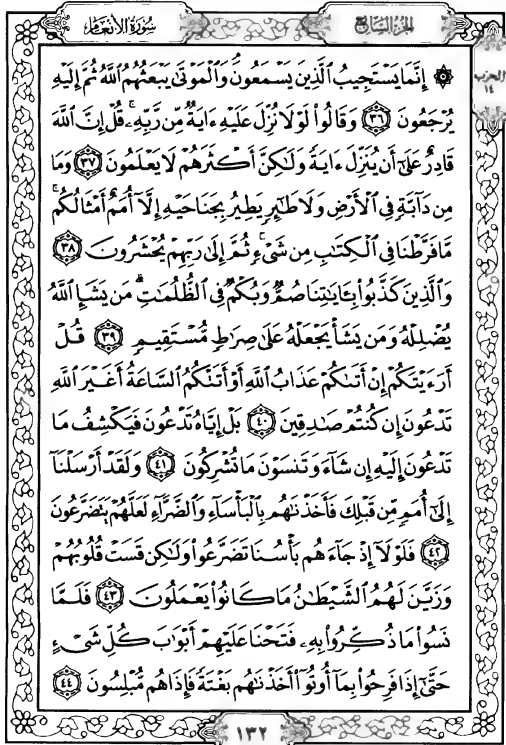 سُورَةُ الأَنْعَامِ
الجُزْءُ السَّابِعُ
الحزب
١٤
۞ إِنَّمَا يَسْتَجِيبُ الَّذِينَ يَسْمَعُونَ وَالْمَوْتَىٰ يَبْعَثُهُمُ اللَّهُ ثُمَّ إِلَيْهِ
يُرْجَعُونَ ٣٦ وَقَالُوا۟ لَوْلَا نُزِّلَ عَلَيْهِ ءَايَةٌ مِّن رَّبِّهِۦ ۚ قُلْ إِنَّ اللَّهَ
قَادِرٌ عَلَىٰٓ أَن يُنَزِّلَ ءَايَةً وَلَٰكِنَّ أَكْثَرَهُمْ لَا يَعْلَمُونَ ٣٧ وَمَا
مِن دَآبَّةٍ فِي الْأَرْضِ وَلَا طَٰٓئِرٍ يَطِيرُ بِجَنَاحَيْهِ إِلَّآ أُمَمٌ أَمْثَالُكُم ۚ
مَّا فَرَّطْنَا فِي الْكِتَٰبِ مِن شَيْءٍ ۚ ثُمَّ إِلَىٰ رَبِّهِمْ يُحْشَرُونَ ٣٨
وَالَّذِينَ كَذَّبُوا۟ بِـَٔايَٰتِنَا صُمٌّ وَبُكْمٌ فِي الظُّلُمَٰتِ ۗ مَن يَشَإِ اللَّهُ
يُضْلِلْهُ وَمَن يَشَأْ يَجْعَلْهُ عَلَىٰ صِرَٰطٍ مُّسْتَقِيمٍ ٣٩ قُلْ
أَرَءَيْتَكُمْ إِنْ أَتَىٰكُمْ عَذَابُ اللَّهِ أَوْ أَتَتْكُمُ السَّاعَةُ أَغَيْرَ اللَّهِ
تَدْعُونَ إِن كُنتُمْ صَٰدِقِينَ ٤٠ بَلْ إِيَّاهُ تَدْعُونَ فَيَكْشِفُ مَا
تَدْعُونَ إِلَيْهِ إِن شَآءَ وَتَنسَوْنَ مَا تُشْرِكُونَ ٤١ وَلَقَدْ أَرْسَلْنَآ
إِلَىٰٓ أُمَمٍ مِّن قَبْلِكَ فَأَخَذْنَٰهُم بِالْبَأْسَآءِ وَالضَّرَّآءِ لَعَلَّهُمْ يَتَضَرَّعُونَ
٤٢ فَلَوْلَآ إِذْ جَآءَهُم بَأْسُنَا تَضَرَّعُوا۟ وَلَٰكِن قَسَتْ قُلُوبُهُمْ
وَزَيَّنَ لَهُمُ الشَّيْطَٰنُ مَا كَانُوا۟ يَعْمَلُونَ ٤٣ فَلَمَّا
نَسُوا۟ مَا ذُكِّرُوا۟ بِهِۦ فَتَحْنَا عَلَيْهِمْ أَبْوَٰبَ كُلِّ شَيْءٍ
حَتَّىٰٓ إِذَا فَرِحُوا۟ بِمَآ أُوتُوٓا۟ أَخَذْنَٰهُم بَغْتَةً فَإِذَا هُم مُّبْلِسُونَ ٤٤
١٣٢